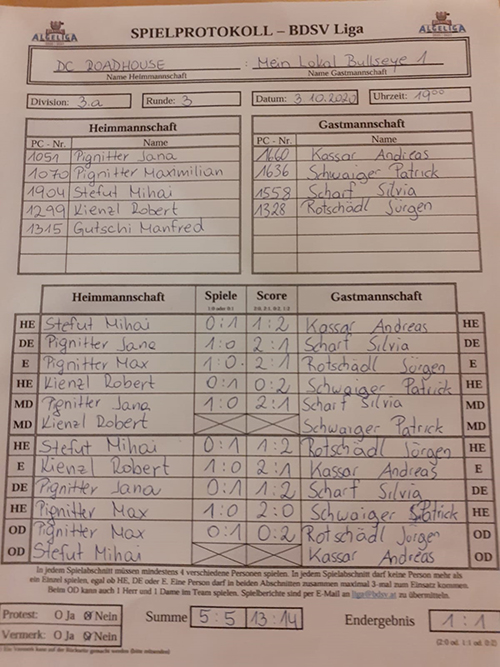 ALGELIGA SPIELPROTOKOLL – BDSV Liga ALGELIGA
DC ROADHOUSE : Mein Lokal Bullseye 1
Name Heimmannschaft Name Gastmannschaft
Division: 3.a Runde: 3 Datum: 3.10.2020 Uhrzeit: 19⁰⁰
Heimmannschaft
PC - Nr. Name
1051 Pignitter Jana
1070 Pignitter Maximilian
1904 Stefut Mihai
1299 Kienzl Robert
1315 Gutschi Manfred
Gastmannschaft
PC - Nr. Name
1660 Kassar Andreas
1636 Schwaiger Patrick
1558 Scharf Silvia
1328 Rotschädl Jürgen
Heimmannschaft Spiele Score Gastmannschaft
1:0 oder 0:1 2:0, 2:1, 0:2, 1:2
HE Stefut Mihai 0:1 1:2 Kassar Andreas HE
DE Pignitter Jana 1:0 2:1 Scharf Silvia DE
E Pignitter Max 1:0 2:1 Rotschädl Jürgen E
HE Kienzl Robert 0:1 0:2 Schwaiger Patrick HE
MD Pignitter Jana 1:0 2:1 Scharf Silvia MD
MD Kienzl Robert Schwaiger Patrick MD
HE Stefut Mihai 0:1 1:2 Rotschädl Jürgen HE
E Kienzl Robert 1:0 2:1 Kassar Andreas E
DE Pignitter Jana 0:1 1:2 Scharf Silvia DE
HE Pignitter Max 1:0 2:0 Schwaiger Patrick HE
OD Pignitter Max 0:1 0:2 Rotschädl Jürgen OD
OD Stefut Mihai Kassar Andreas OD
In jedem Spielabschnitt müssen mindestens 4 verschiedene Personen spielen. In jedem Spielabschnitt darf keine Person mehr als
ein Einzel spielen, egal ob HE, DE oder E. Eine Person darf in beiden Abschnitten zusammen maximal 3-mal zum Einsatz kommen.
Beim OD kann auch 1 Herr und 1 Dame im Team spielen. Spielberichte sind per E-Mail an liga@bdsv.at zu übermitteln.
Protest: O Ja O Nein Summe 5:5 13:14 Endergebnis 1:1
Vermerk: O Ja O Nein (2:0 od. 1:1 od. 0:2)